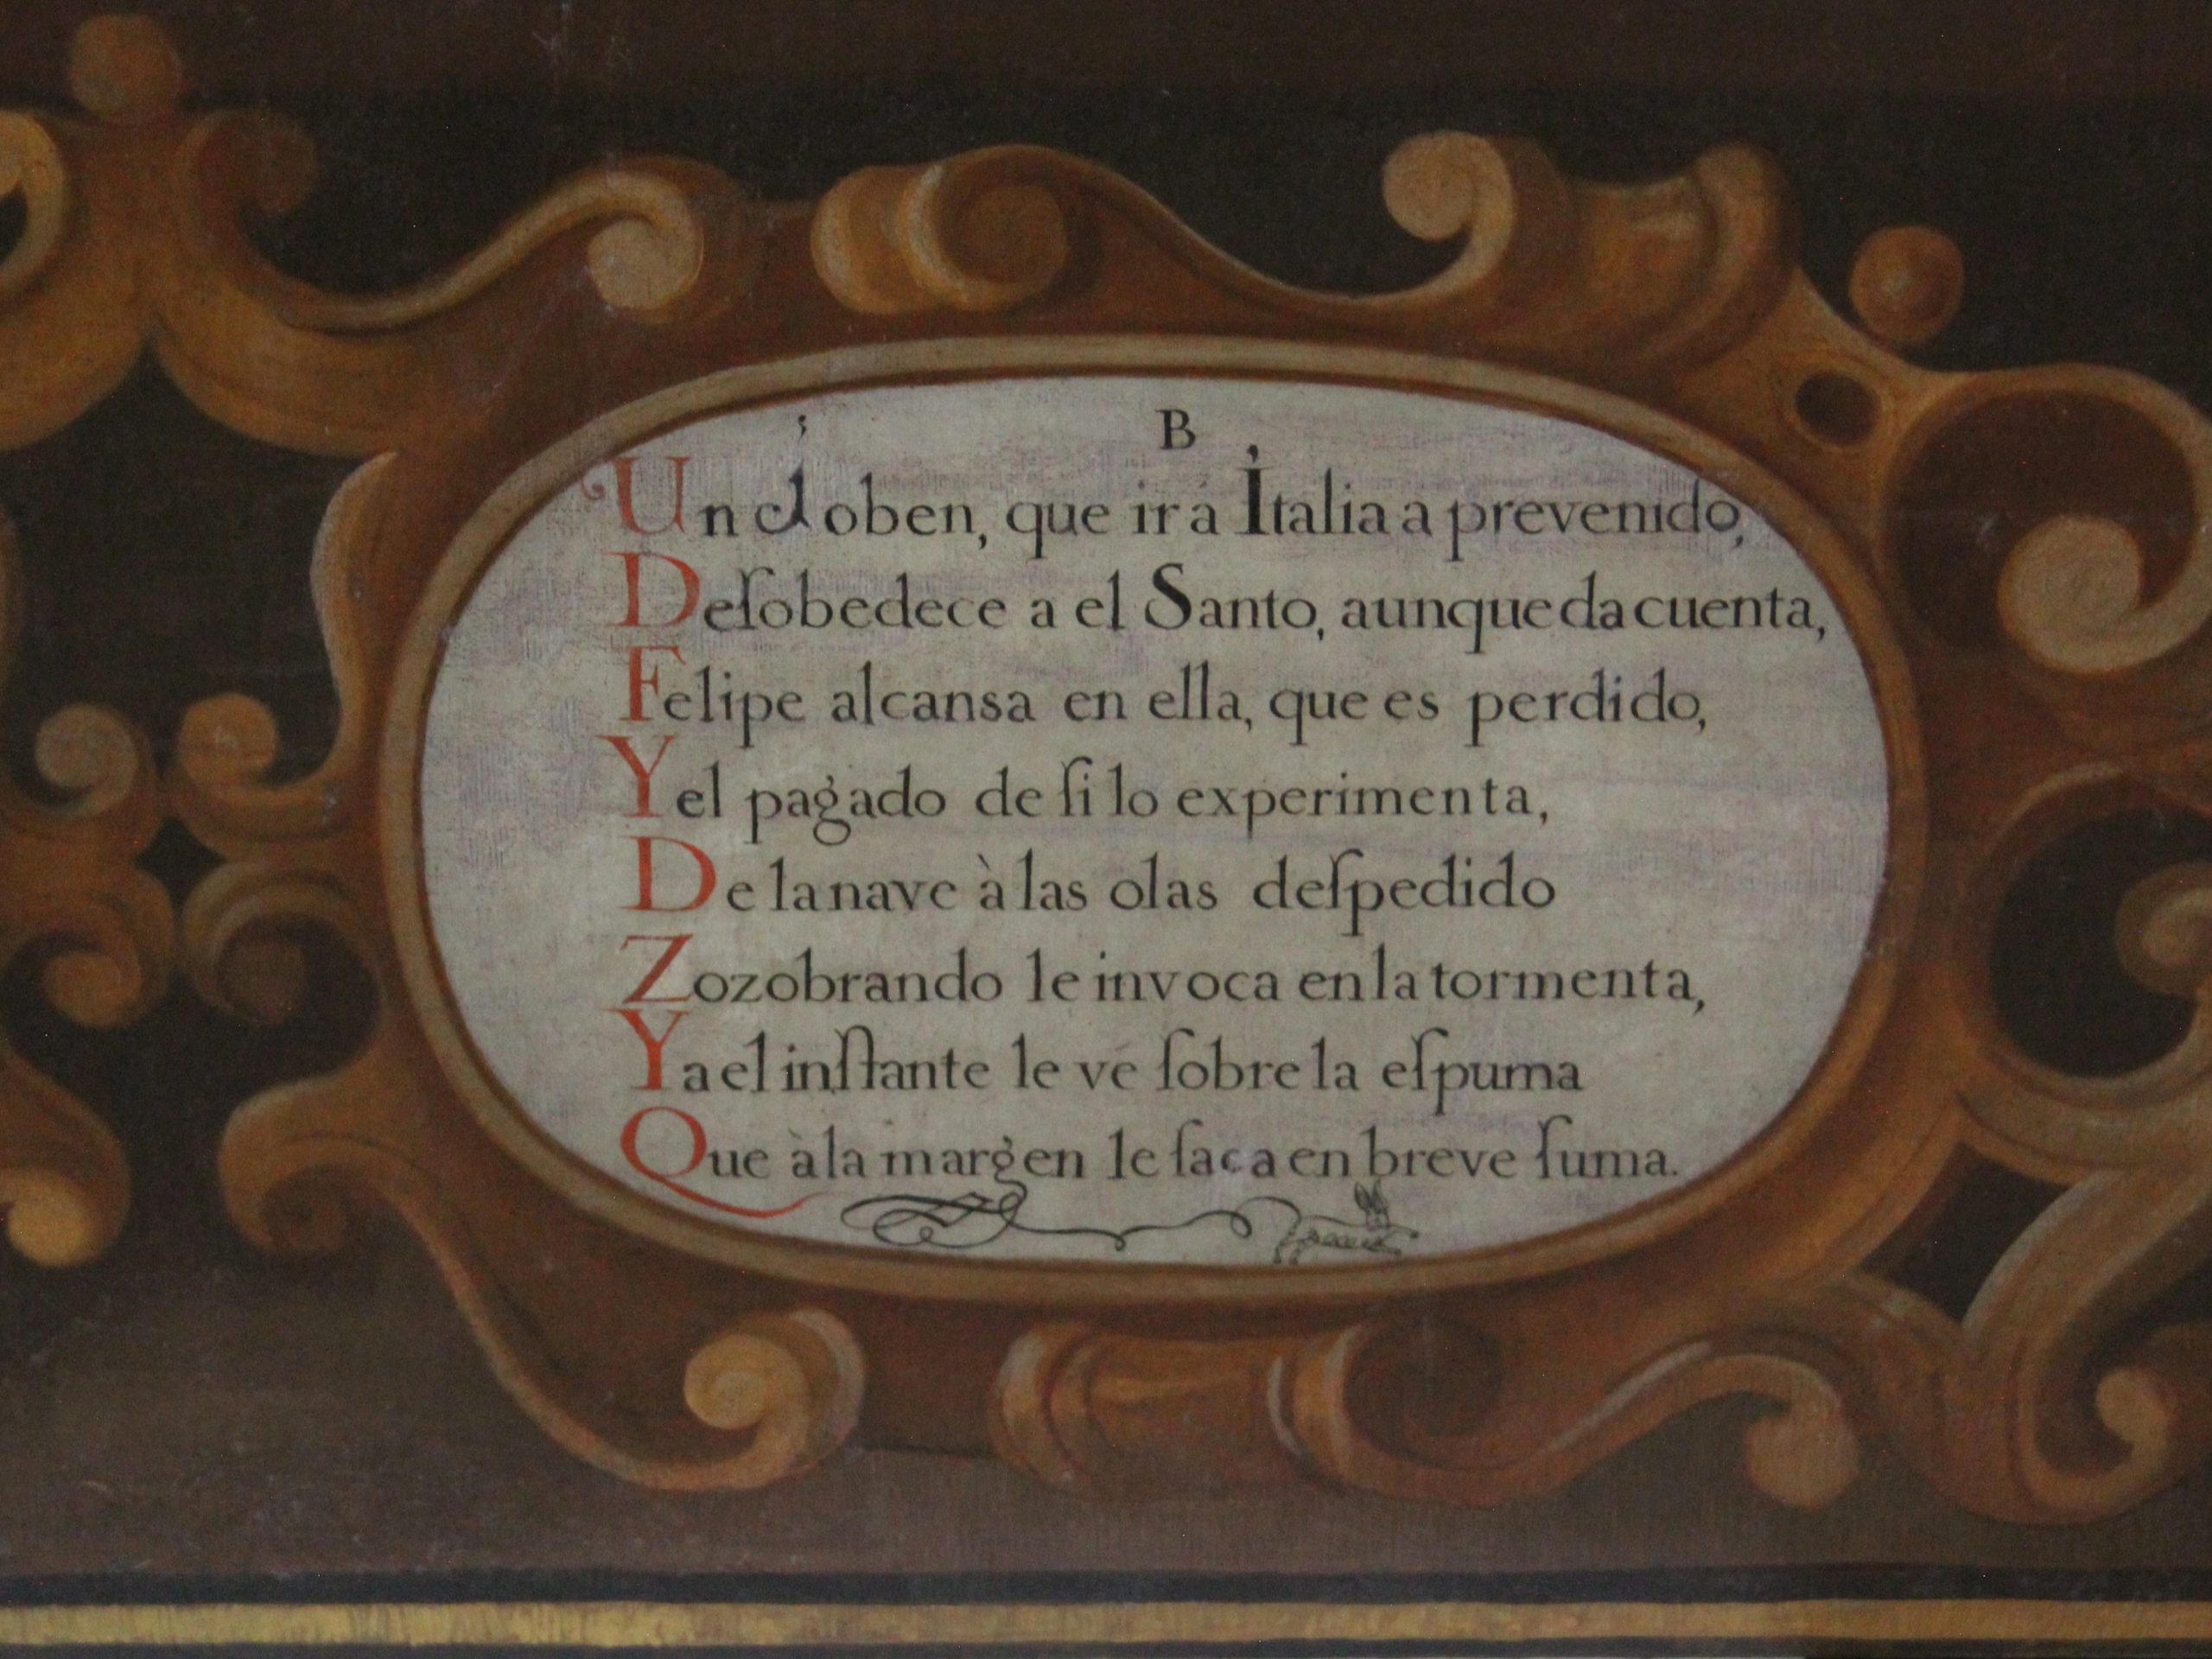 B
Un Joben, que ir a Italia a prevenido,
Deſobedece a el Santo, aunque da cuenta,
Felipe alcansa en ella, que es perdido,
Y el pagado de ſi lo experimenta,
De la nave à las olas deſpedido
Zozobrando le invoca en la tormenta,
Y a el inſtante le vé ſobre la eſpuma
Que à la margen le ſaca en breve ſuma.